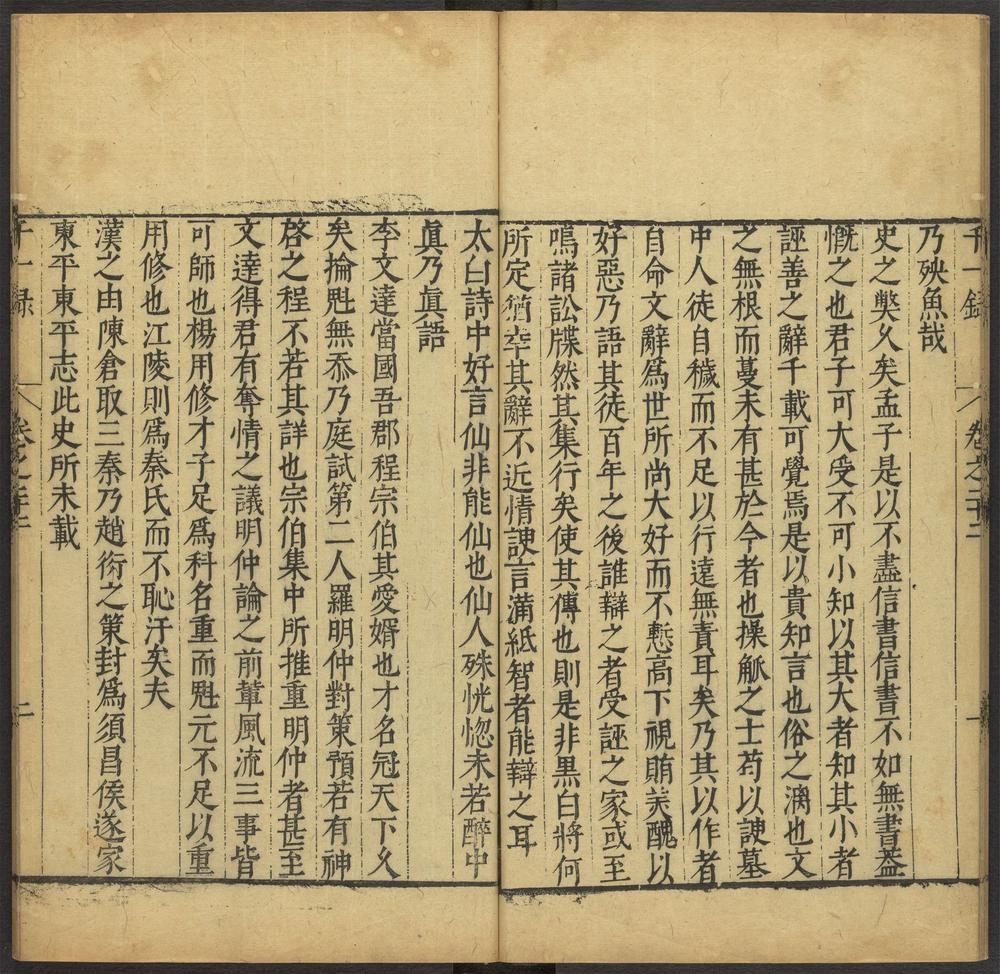 千一錄 卷之二十二 一
乃殃魚哉
史之獘久矣孟子是以不盡信書信書不如無書葢
慨之也君子可大受不可小知以其大者知其小者
誣善之辭千載可覺焉是以貴知言也俗之漓也文
之無根而蔓未有甚於今者也操觚之士苟以諛墓
中人徒自穢而不足以行遠無責耳矣乃其以作者
自命文辭爲世所尚大好而不慙高下視賄美醜以
好惡乃語其徒百年之後誰辯之者受誣之家或至
鳴諸訟牒然其集行矣使其傳也則是非黒白將何
所定猶幸其辭不近情諛言滿紙智者能辯之耳
太白詩中好言仙非能仙也仙人殊恍惚未若醉中
眞乃眞語
李文達當國吾郡程宗伯其愛婿也才名冠天下久
矣掄魁無忝乃庭試第二人羅明仲對策預若有神
啓之程不若其詳也宗伯集中所推重明仲者甚至
文達得君有奪情之議明仲論之前輩風流三事皆
可師也楊用修才子足爲科名重而魁元不足以重
用修也江陵則爲秦氏而不恥汙矣夫
漢之由陳倉取三秦乃趙衍之策封爲須昌侯遂家
東平東平志此史所未載
千一録 卷之二十二 二